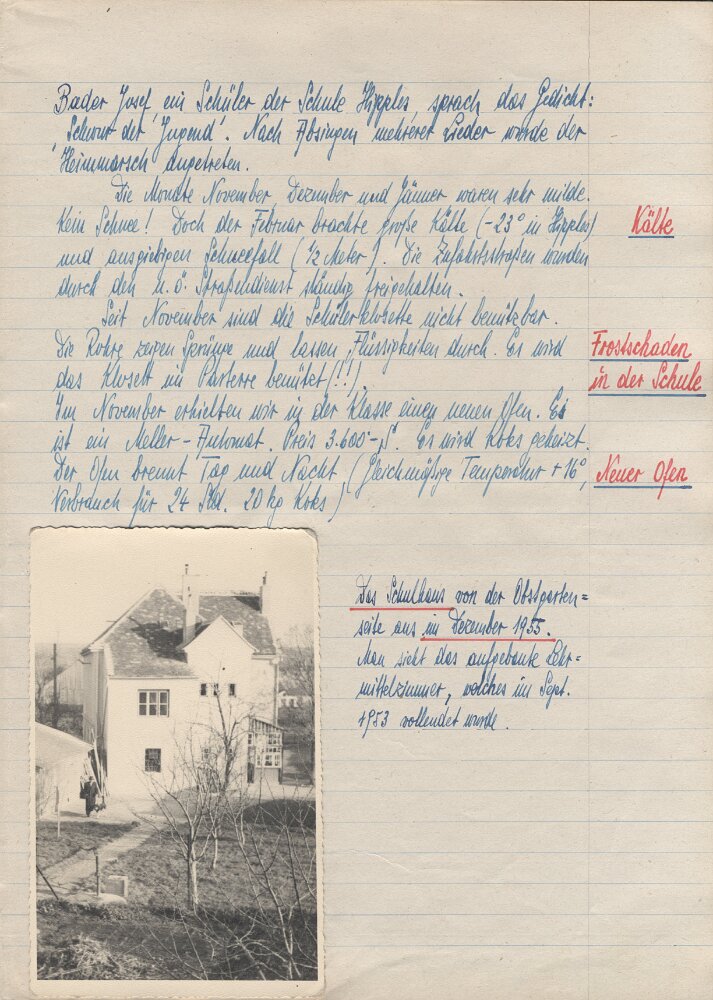 Bader Josef ein Schüler der Schule Hipples, sprach das Gedicht:
'Schwur der Jugend'. Nach Absingen mehrerer Lieder wurde der
Heimmarsch angetreten.
Die Monate November, Dezember und Jänner waren sehr milde.
Kein Schnee! Doch der Februar brachte große Kälte (-23° in Hipples)
Kälte
und ausgiebigen Schneefall (½ Meter). Die Zufahrtsstraßen wurden
durch den n.ö. Straßendienst ständig freigehalten.
Seit November sind die Schülerklosette nicht benützbar.
Die Rohre zeigen Sprünge und lassen Flüssigkeiten durch. Es wird
Frostschaden
das Klosett im Parterre benützt (!!).
in der Schule
Im November erhielten wir in der Klasse einen neuen Ofen. Es
ist ein Meller-Automat. Preis 3.600-S. Es wird Koks geheizt.
Der Ofen brennt Tag und Nacht, (Gleichmäßige Temperatur +16°,
Neuer Ofen
Verbrauch für 24 Std. 20 kg Koks)
Das Schulhaus von der Obstgarten=
seite aus im Dezember 1955.
Man sieht das aufgebaute Lehr=
mittelzimmer, welches im Sept.
1953 vollendet wurde.